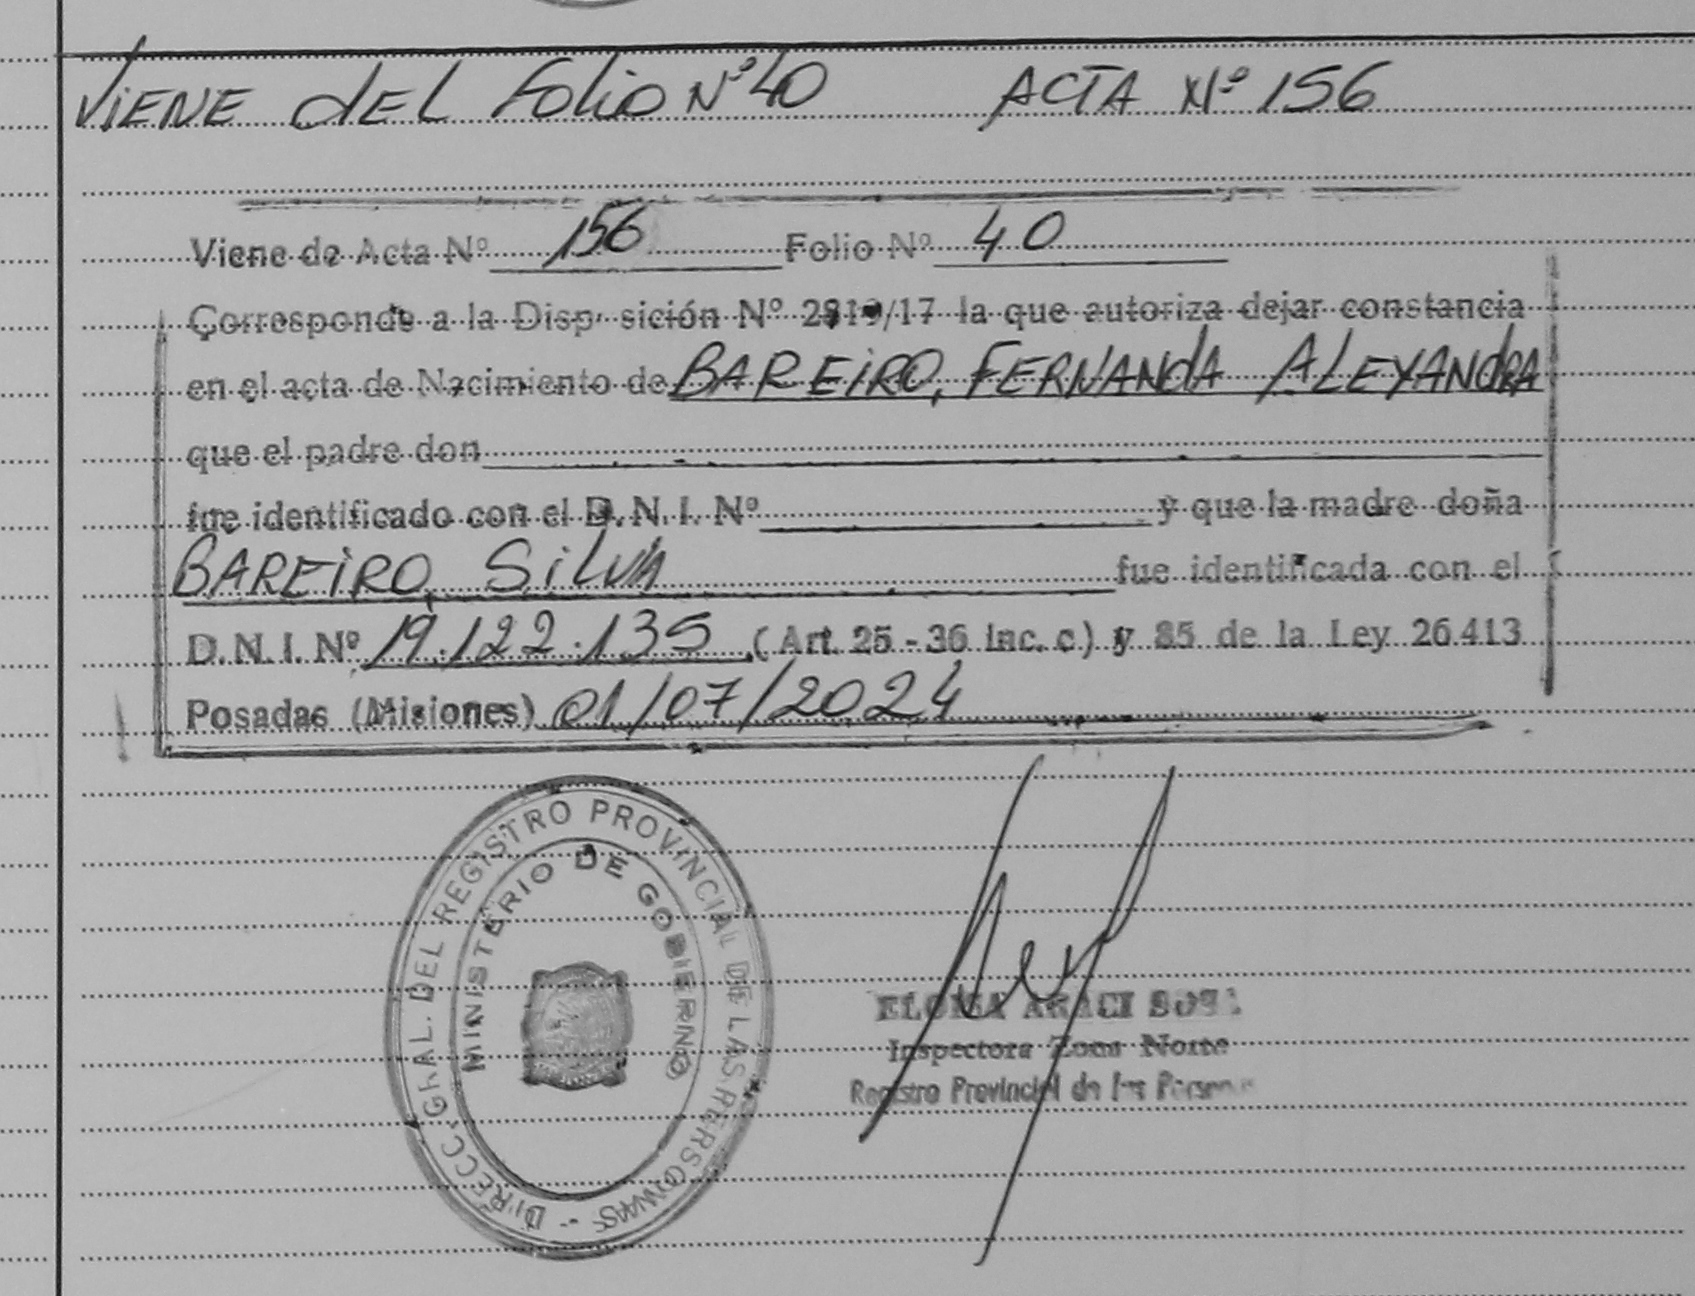 VIENE DEL Folio Nº 40 ACTA Nº 156
Viene de Acta Nº 156 Folio Nº 40
Corresponde a la Disp sición Nº /17 la que autoriza dejar constancia
en el acta de Nacimiento de BAREIRO, FERNANDA ALEXANDRA
que el padre don
fue identificado con el D.N.I. Nº y que la madre doña
BAREIRO, SILVIA fue identificada con el
D.N.I. Nº 19.122.135 (Art. 25 - 36 inc. c.) y 85 de la Ley 26.413
Posadas (Misiones) 01/07/2024
DIRECC. GRAL. DEL REGISTRO PROVINCIAL DE LAS PERSONAS
MINISTERIO DE GOBIERNO
ARACI
Inspectora Zona Norte
Registro Provincial de las